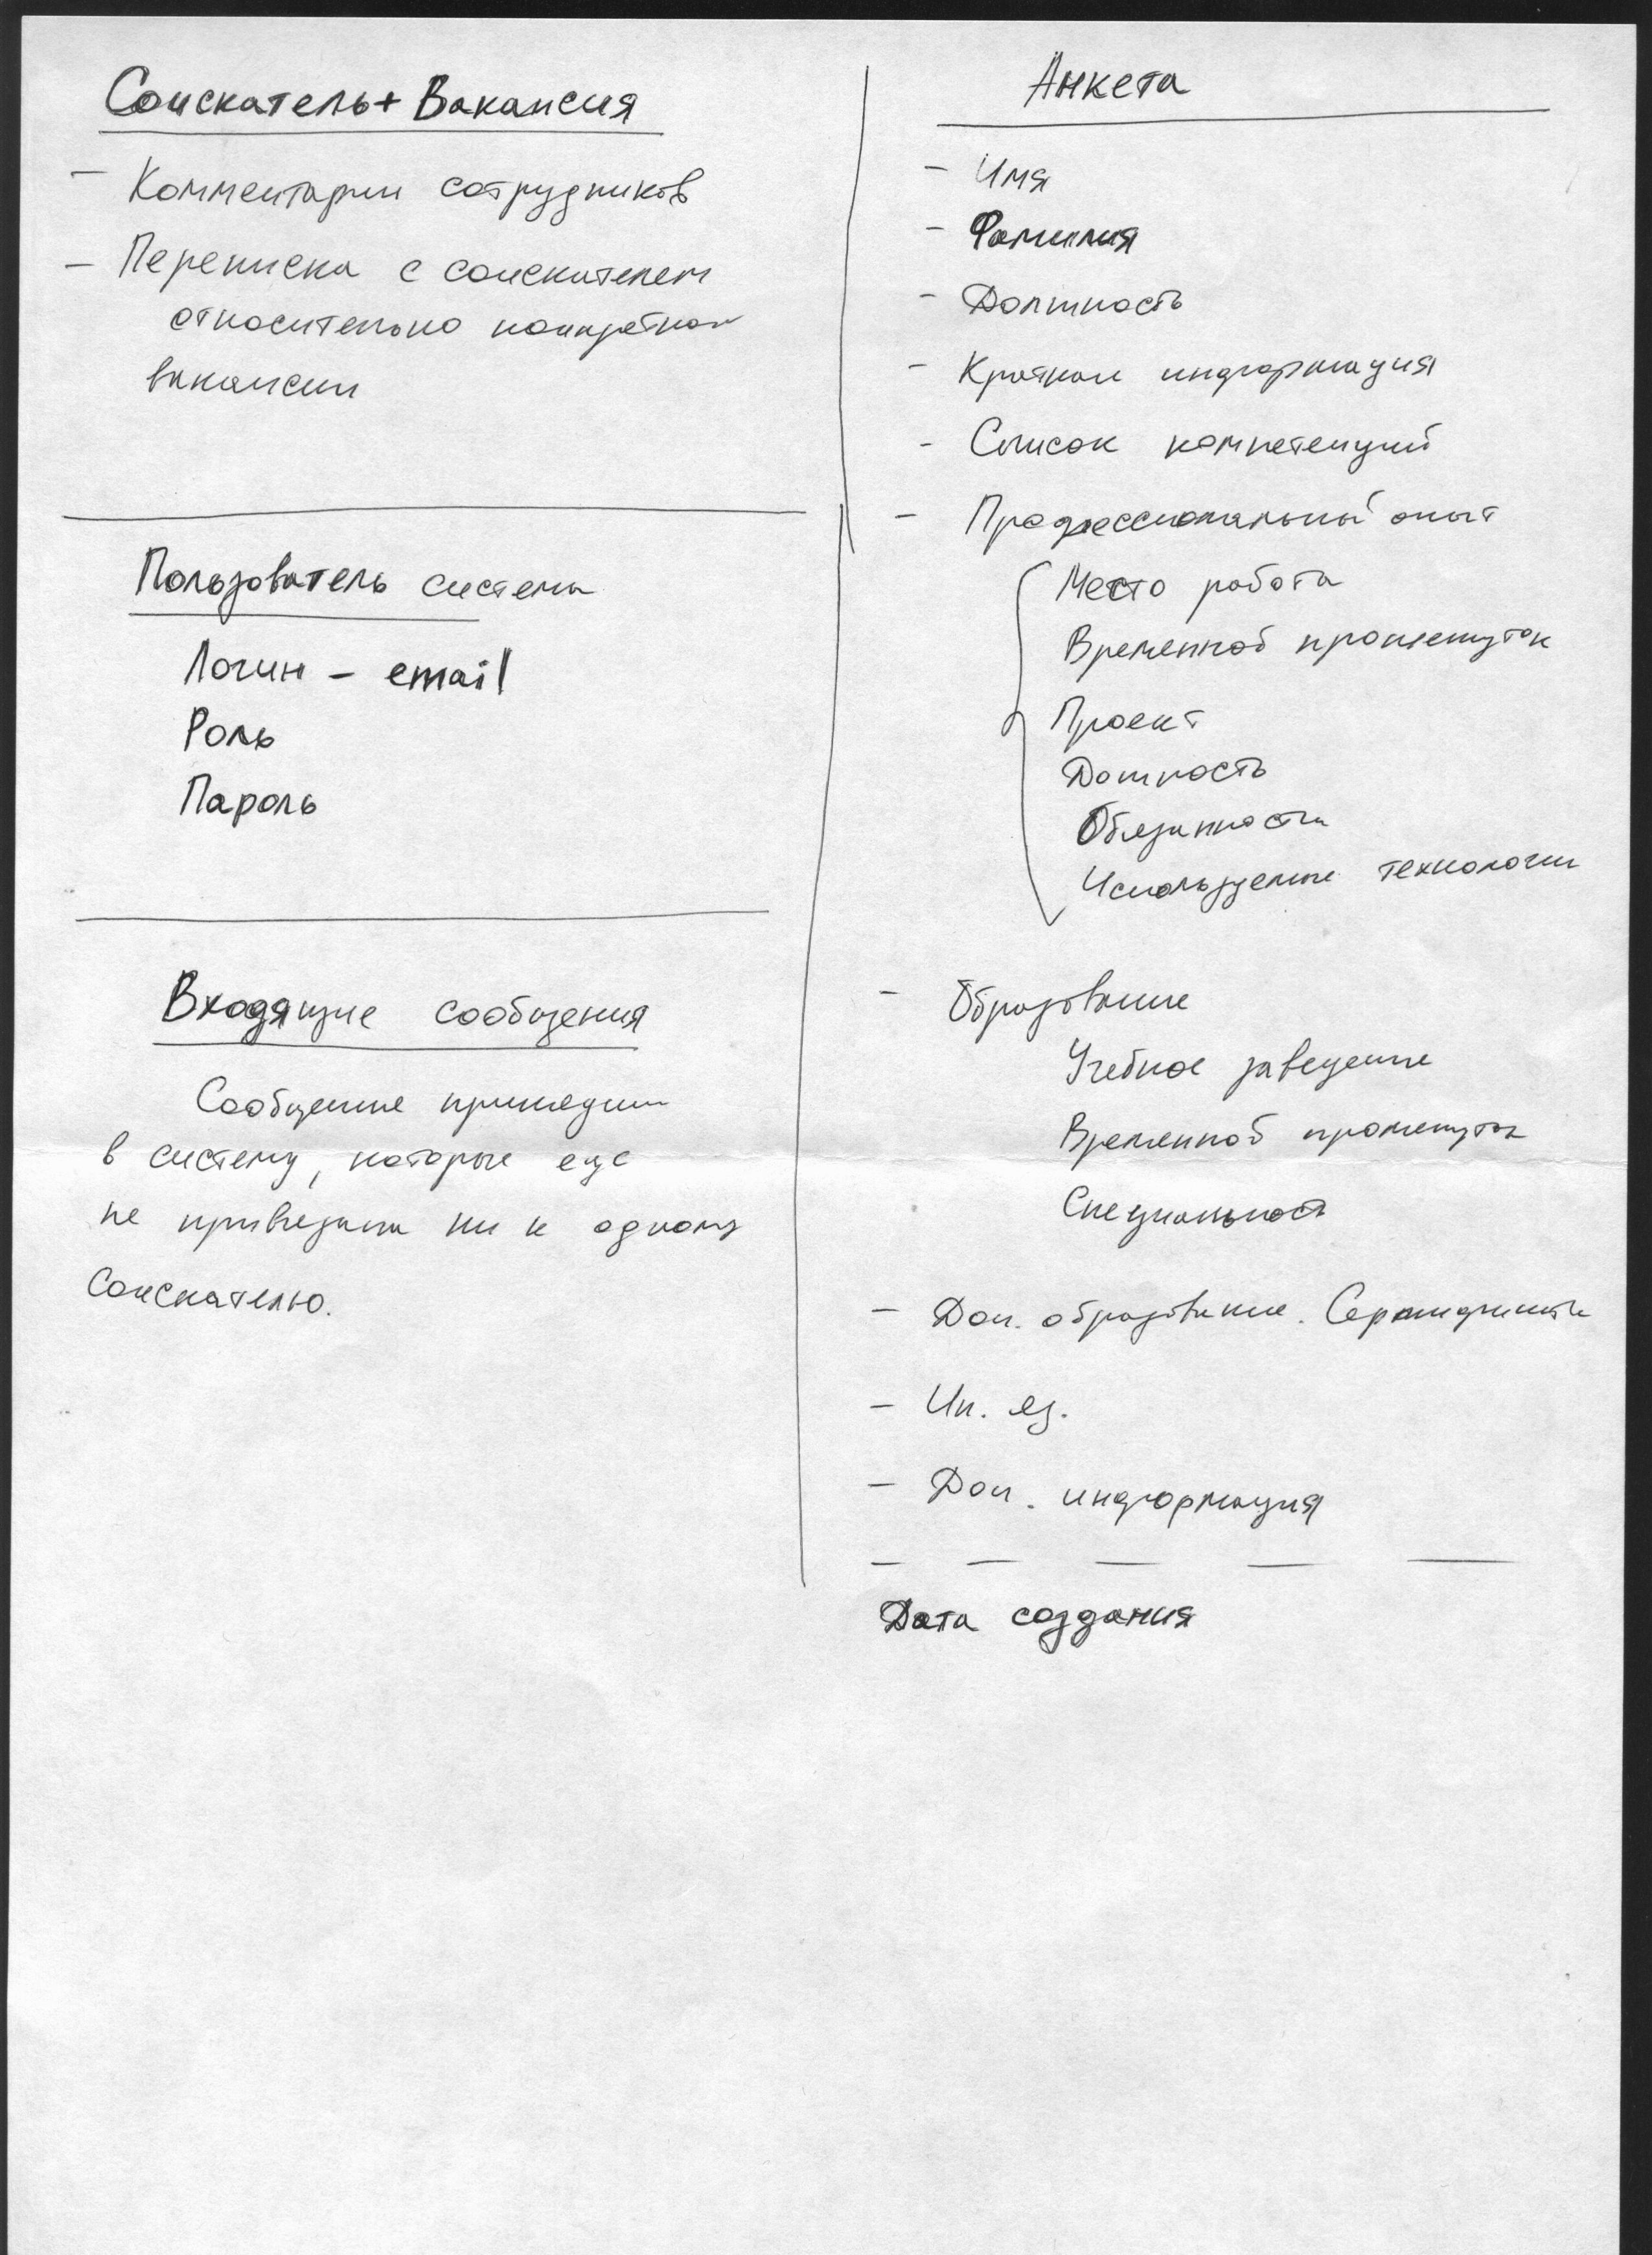 Соискатель + Вакансия
- Комментарии сотрудников
- Переписка с соискателем
относительно конкретной
вакансии
Пользователь системы
Логин - email
Роль
Пароль
Входящие сообщения
Сообщение пришедшие
в систему, которые еще
не привязаны ни к одному
соискателю.
Анкета
- Имя
- Фамилия
- Должность
- Краткая информация
- Список компетенций
- Профессиональный опыт
Место работы
Временной промежуток
Проект
Должность
Обязанности
Используемые технологии
- Образование
Учебное заведение
Временной промежуток
Специальность
- Доп. образование. Сертификаты
- Ин. яз.
- Доп. информация
Дата создания